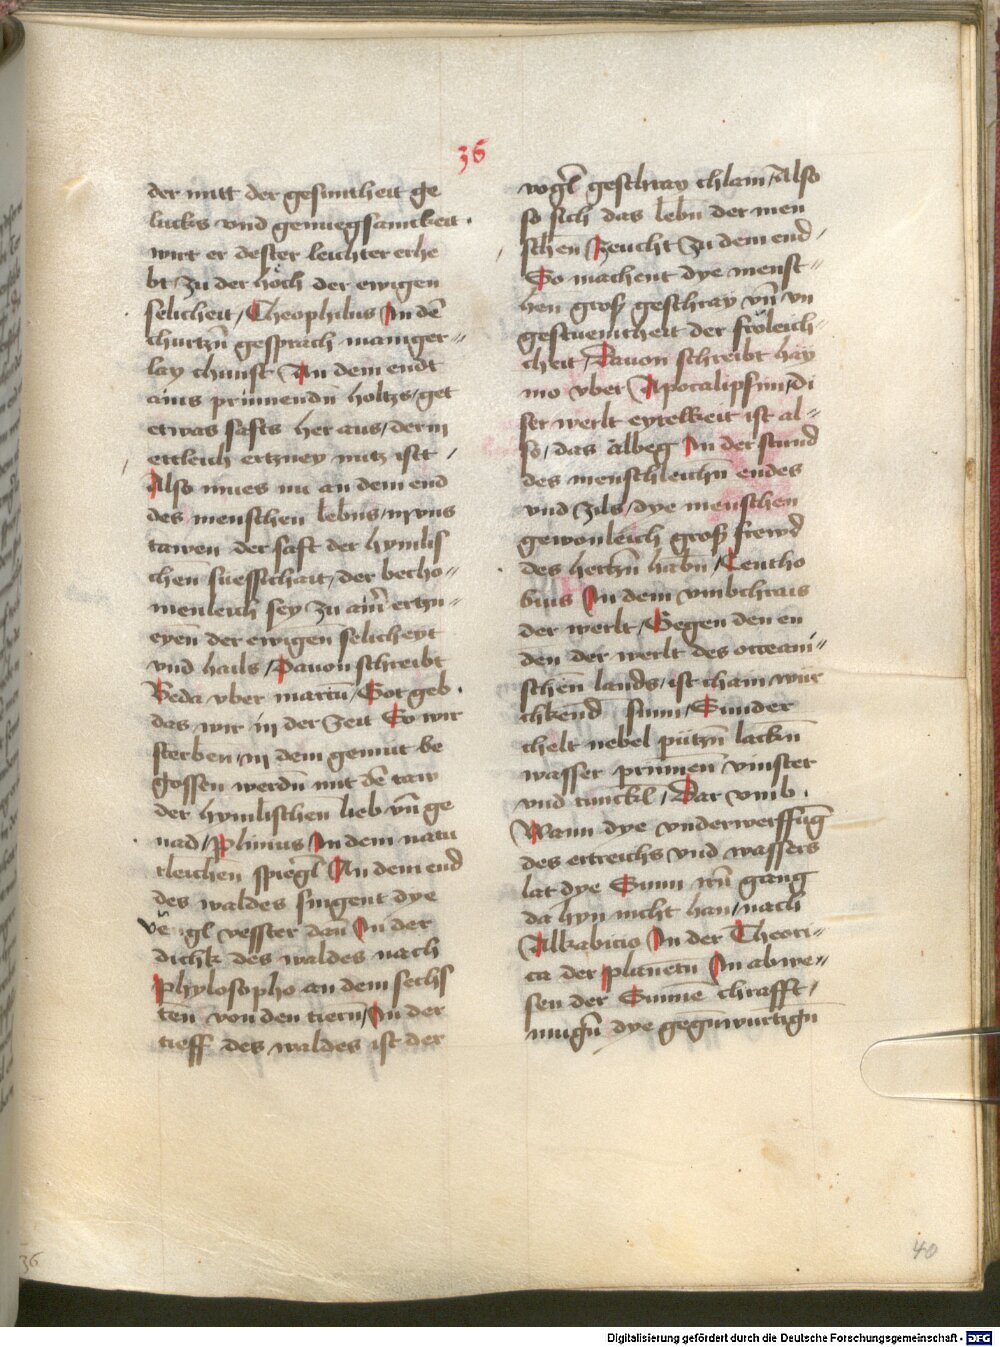 36
der mitt der gesuntheit ge
lucks vnd genuegsamckeit ·
wirt er dester leichter erhe
bt / zu der höch der ewigen
selicheit / Theophilus In dē
churtzn̄ gesprach maniger=
lay chunst An dem endt
ains prinnendn̄ holtzs / get
etwas safts her aus / der in
ettleich ertzney nutz istt /
Also mues nu an dem end
des menschen lebn̄s / in vns
tawen der saft der hymlis
chen süessichait / der becho=
menleich sey zu aim̄ ertzn=
eyen der ewigen̄ selicheyt
vnd hails / Dauon schreibt
Beda vber marcū / Got geb ·
das wir in der zeit So wir
sterben / in dem gemüt be
gossen werdn̄ mit dē taw
der hymlischen̄ lieb vn̄ ge
nad / Plinius / In dem natu
rleichen spiegl̄ An dem end
des waldes singent dye
vögl vesster dan̄ In der
dichk des waldes nach
Phylosopho an dem sechs
ten̄ von den tiern̄ / In der
tieff des waldes ist der
vogl̄ geschray chlain̄ / Also
so sich das lebn̄ der men
schen̄ zeucht zu dem end /
So machent dye mensc=
hen gros geschray vn̄ vn
gestuemtheit der fröleich=
cheit / Dauon schreibt hay
mo vber Apocalipsim / di
ser werlt eytelkeit ist al=
so / das albeg In der stund
des menschleichn̄ endes
vnd zils / dye menschen
gewonleich gros frewd
des hertzn̄ habn̄ / Leutho
bius In dem vmbchrais
der werlt / Gegen den en
den der werlt des occeani=
schen̄ lands / ist chain wür
chkend sunn / Sunder
chelt nebel pützn̄ lackn̄
wasser prinnen̄ vinster
vnd tunckl / Dar vmb ·
Wann dye vnderwerffūg
des ertreichs vnd wassers
lat dye Sunn irn̄ gang
da hyn nicht han / nach
Alkabicio In der Theori=
ca der planetn̄ In abwe=
sen der Sunnē chrafft /
mugn̄ dye gegn̄wurtign̄
36
40
Digitalisierung gefördert durch die Deutsche Forschungsgemeinschaft - DFG